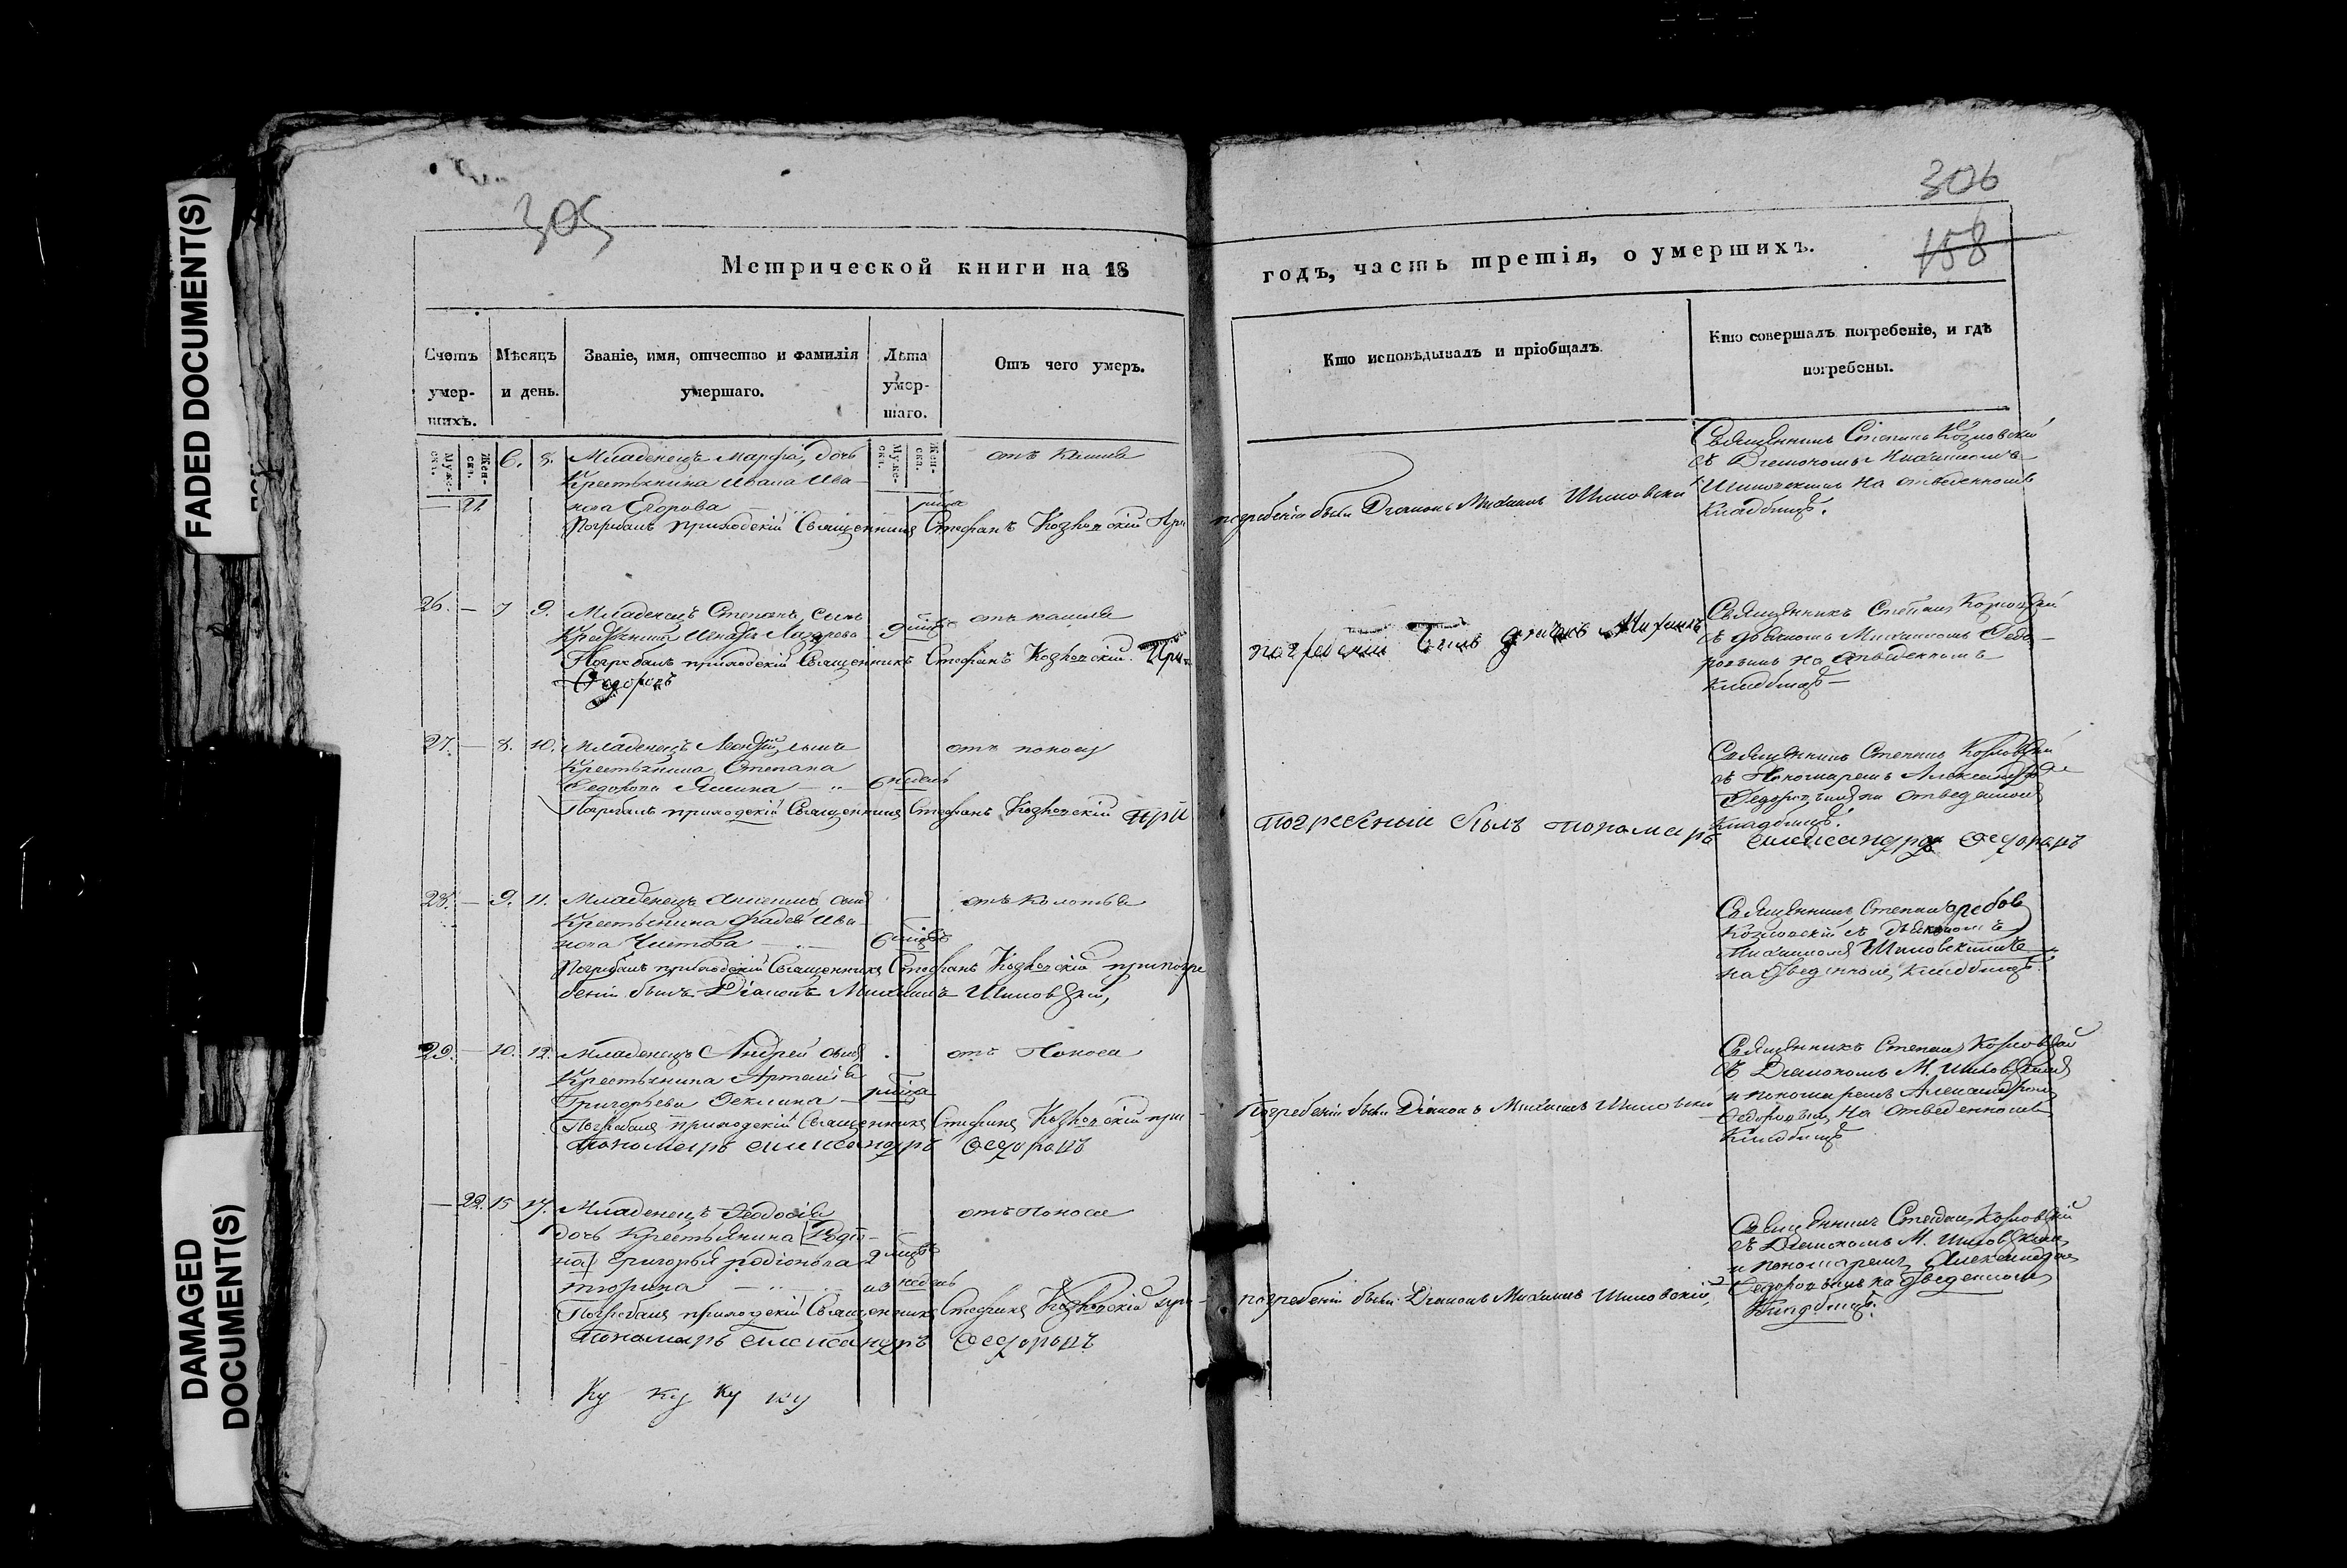 FADED DOCUMENT(S)
DAMAGED
DOCUMENT(S)
305
Метрической книги на 18
Счетъ умер-шихъ.
Мѣсяцъ и день.
Званіе, имя, отчество и фамилія умершаго.
Лѣта умер-шаго.
Отъ чего умеръ.
Муже-ска.
Жен-ска.
Муже-ска.
Жен-ска.
— 21 6. 8. Младенецъ Марфа, дочь
отъ Кашля
Крестьянина Ивана Ива-
нова Егорова
Погребалъ приходскій Священникъ Стефанъ Козловскій При
26. — 7 9. Младенецъ Степанъ сынъ
отъ кашля
Крестьянина Лазарева 9
Погребалъ приходскій Священникъ Стефанъ Козловскій. При
Федоровъ
27. — 8. 10. Младенецъ сынъ
отъ поноса
Крестьянина Степана
Федорова 6 недель
Погребалъ приходскій Священникъ Стефанъ Козловскій при
28. — 9. 11. Младенецъ сынъ
Крестьянина Фадея Ива
нова Чистова 6
Погребалъ приходскій Священникъ Стефанъ Козловскій при погре
беніи былъ Діаконъ Михаилъ Шиловскій,
29. — 10. 12. Младенецъ Андрей сынъ
отъ Поноса
Крестьянина Артемія
Григорьева
Погребалъ приходскій Священникъ Стефанъ Козловскій при
пономарь Александръ Федоровъ
— 22. 15 17. Младенецъ Феодосія
отъ Поноса
дочь Крестьянина Родіо-
на Григорья родіонова 2
тюрина из недель
Погребалъ приходскій Священникъ Стефанъ Козловскій при
пономарь Александръ Федоровъ
Ку ку ку ку
306
158
годъ, часть третія, о умершихъ.
Кто исповѣдывалъ и пріобщалъ.
Кто совершалъ погребеніе, и гдѣ погребены.
Священникъ Степанъ Козловскій
съ Діакономъ Михаиломъ
Шиловскимъ на отведенномъ
Кладбищѣ.
погребеніи былъ Діаконъ Михаилъ Шиловскій
Священникъ Степанъ Козловскій
съ дьякономъ Михаиломъ Федо-
ровымъ на отведенномъ
кладбищѣ —
погребеніи былъ Михаилъ
Священникъ Степанъ Козловскій
съ Пономаремъ Александромъ
Федоровымъ на отведенномъ
Кладбищѣ.
погребеніи былъ пономарь Александръ Федоровъ
Священникъ Степанъ
Козловскій съ дьякономъ
Михаиломъ Шиловскимъ
на отведенномъ кладбищѣ.
Священникъ Степанъ Козловскій
съ Діакономъ М. Шиловскимъ
и пономаремъ Александромъ
Федоровымъ на отведенномъ
Кладбищѣ
Погребеніи былъ Діаконъ Михаилъ Шиловскій
Священникъ Степанъ Козловскій
съ Діакономъ М. Шиловскимъ
и пономаремъ Александромъ
Федоровымъ на отведенномъ
Кладбищѣ.
погребеніи былъ Діаконъ Михаилъ Шиловскій,